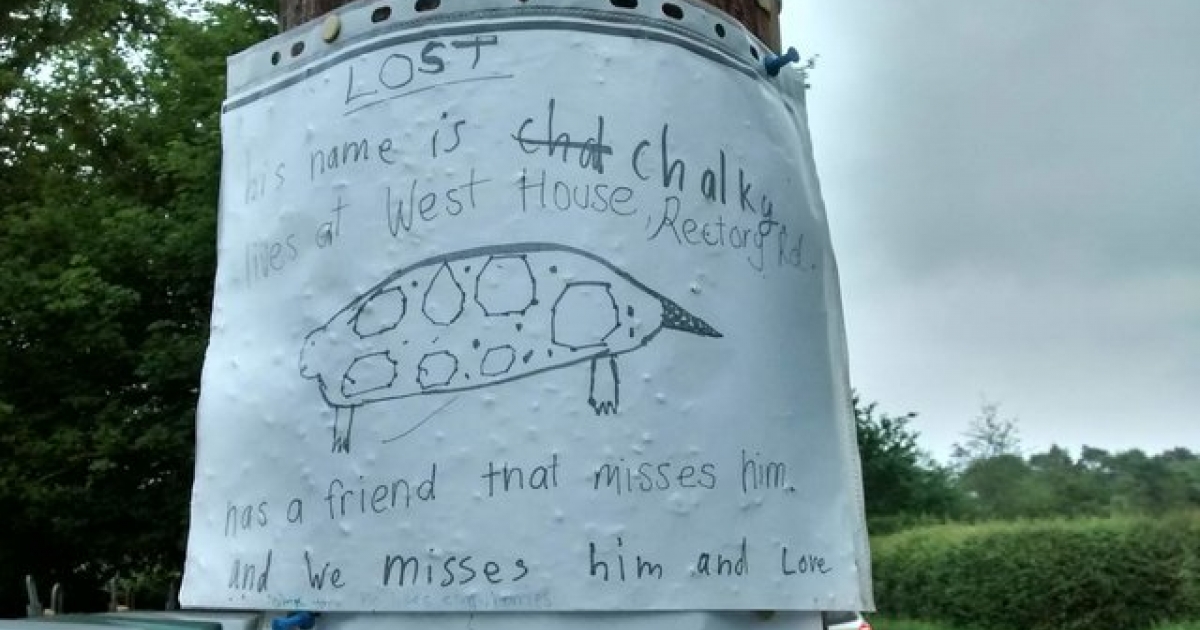 LOST
his name is chal Chalky
lives at West House, Rectory Rd.
has a friend that misses him.
and We misses him and Love